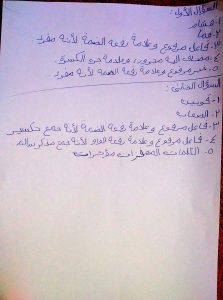 السؤال الأول:
١- هشام
٢- فما
٣- فاعل مرفوع وعلامة رفعه الضمة لأنه مفرد
٤- مضاف إليه مجرور، وعلامة جره الكسرة
٥- خبر مرفوع وعلامة رفعه الضمة لأنه مفرد
السؤال الثاني:
١-
٢- الصعاب
٣- فاعل مرفوع وعلامة رفعه الضمة لأنه جمع تكسير
٤- فاعل مرفوع وعلامة رفعه الواو لأنه جمع مذكر سالم
٥- الكلمات